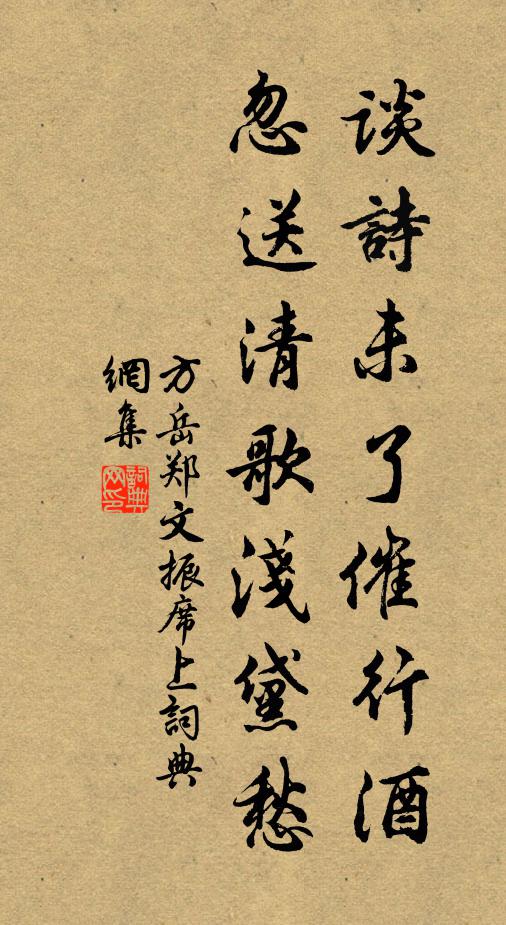 談詩未了催行酒
忽送清歌淺黛愁
方岳郑文振席上詞典
網集
詞典
网印